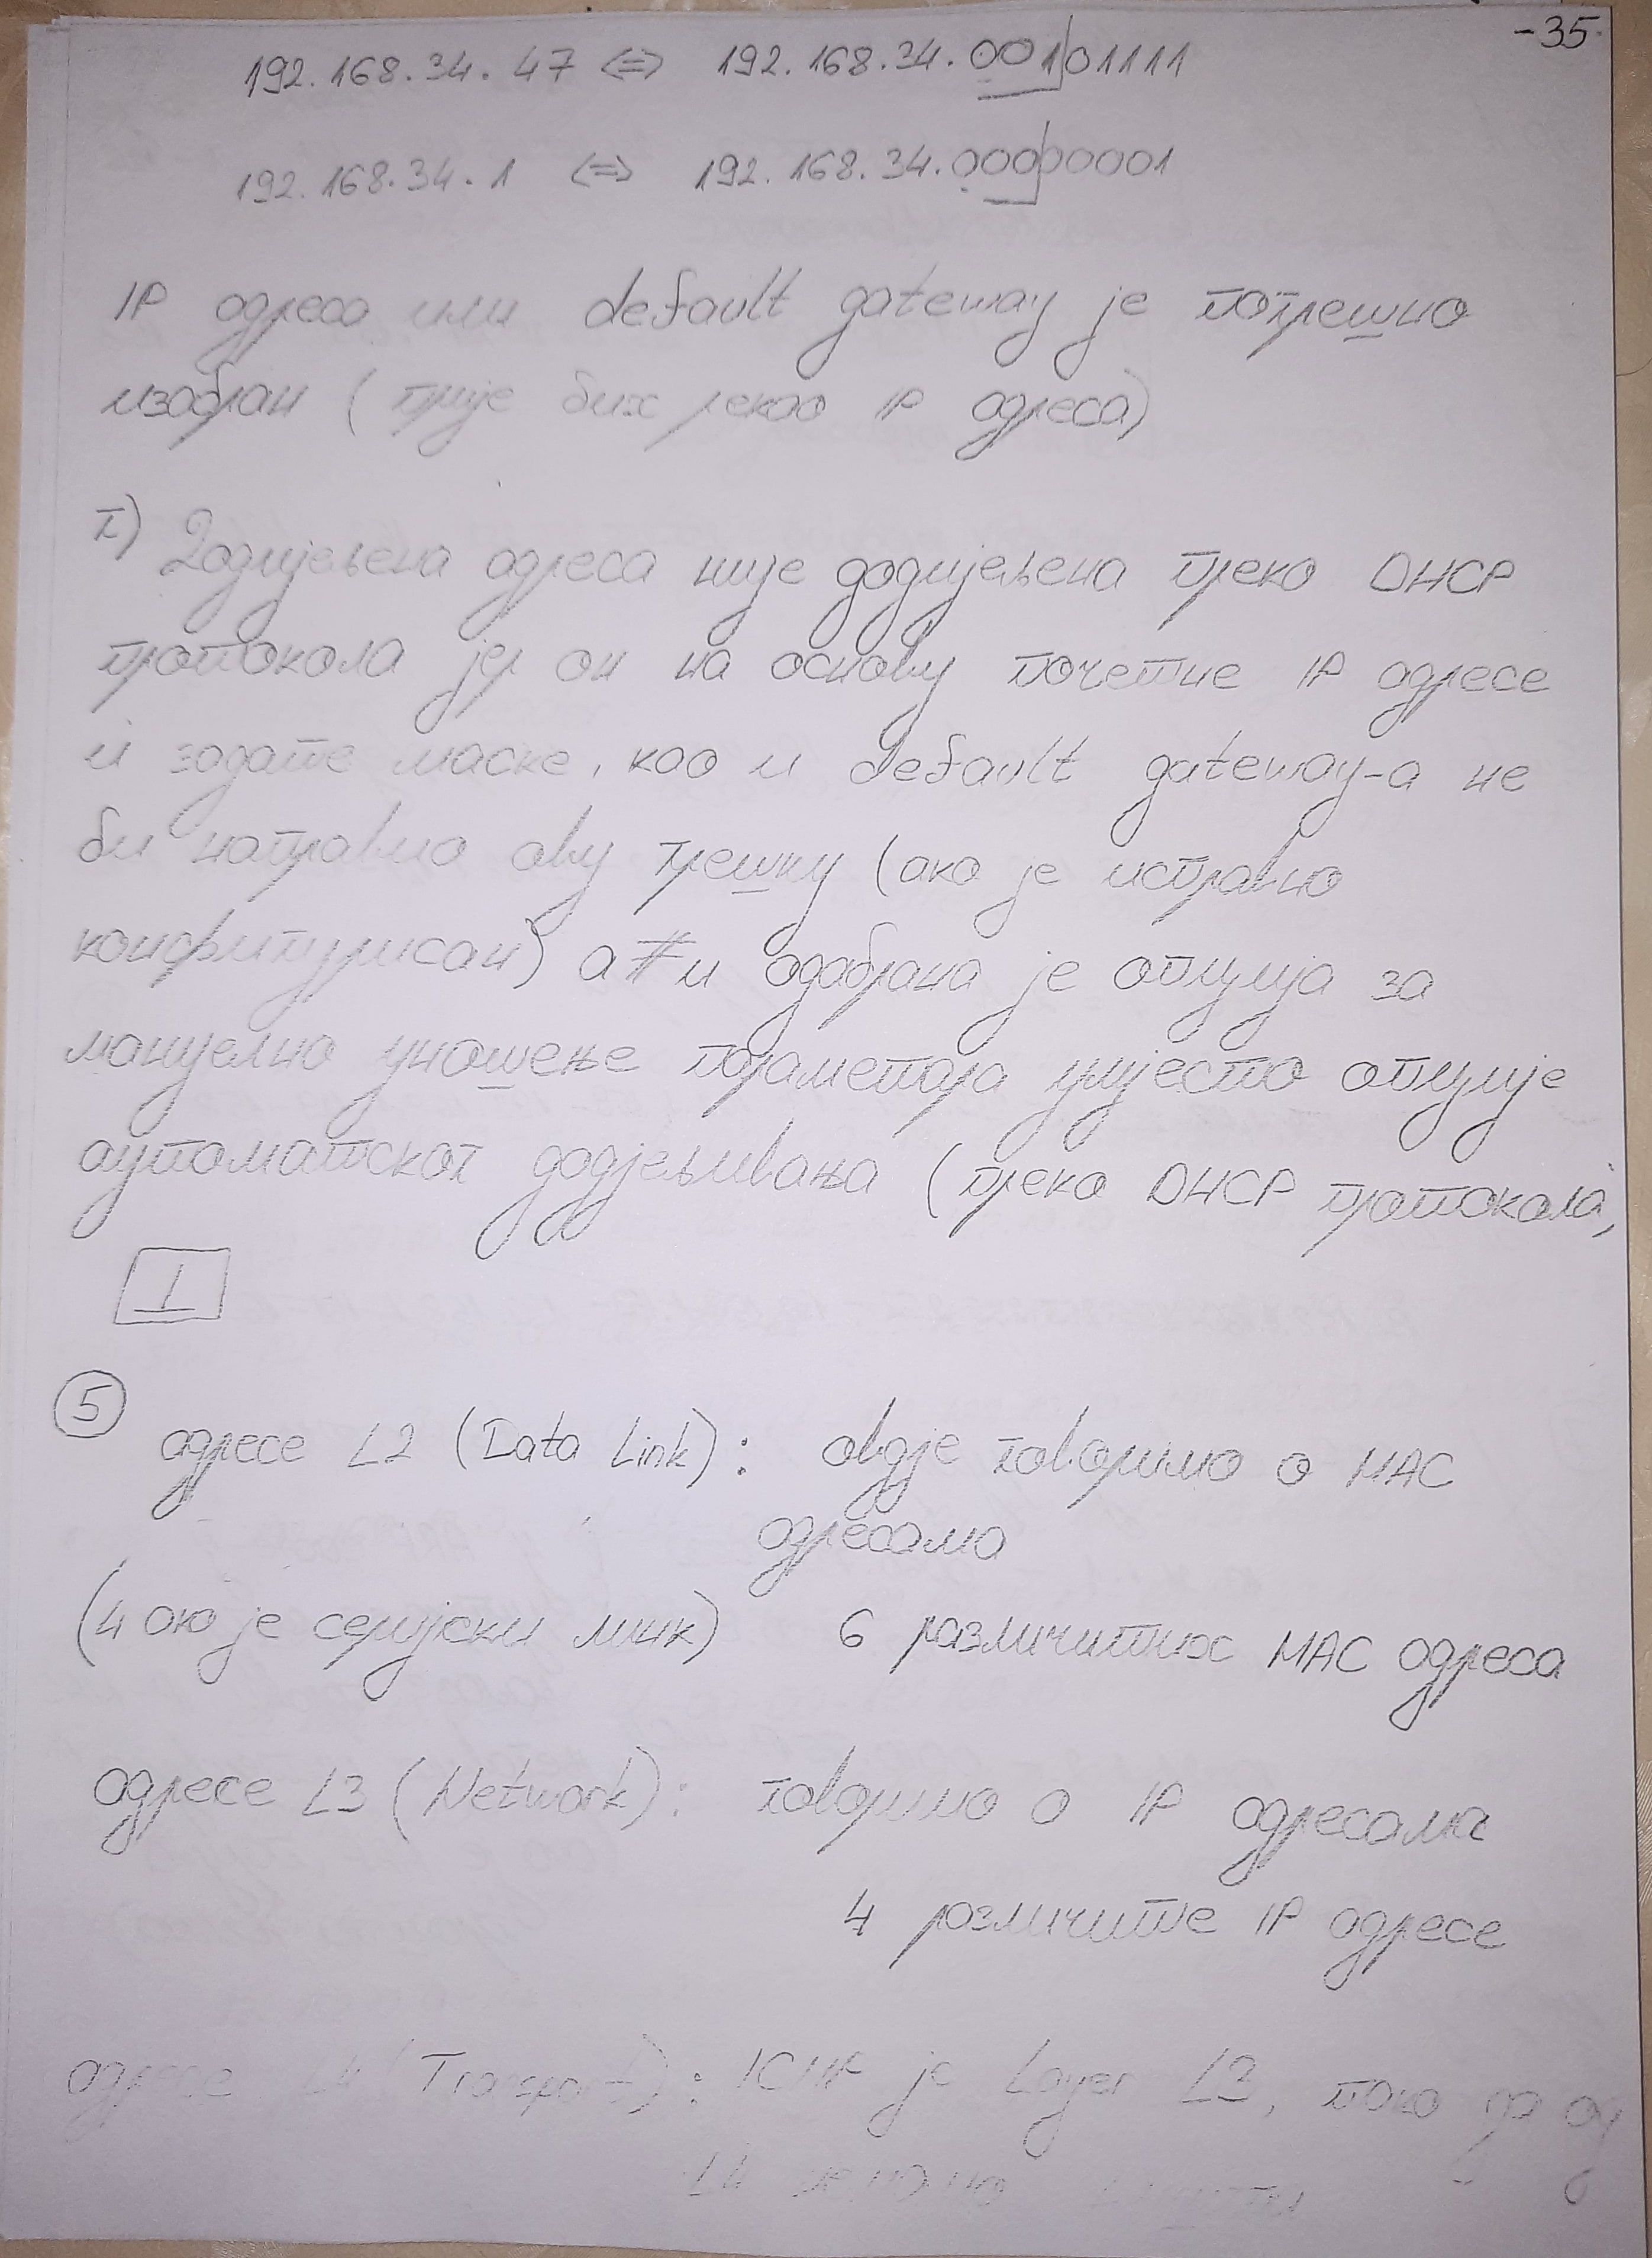 -35-
192.168.34.47 <=> 192.168.34.00101111
192.168.34.1 <=> 192.168.34.00000001
IP адреса или default gateway је погрешно
изабран (прије бих рекао IP адреса)
г) Додијељена адреса није додијељена преко DHCP
протокола јер он на основу почетне IP адресе
и задате маске, као и default gateway-а не
би направио ову грешку (ако је исправно
конфигурисан) а и одабрана је опција за
мануелно уношење параметара умјесто опције
аутоматског додјељивања (преко DHCP протокола)
1
5
адресе L2 (Data Link): овдје говоримо о MAC
адресама
(4 ако је серијски линк) 6 различитих MAC адреса
адресе L3 (Network): говоримо о IP адресама
4 различите IP адресе
адресе L4 (Transport): ICMP је Layer L3, тако да од
L4